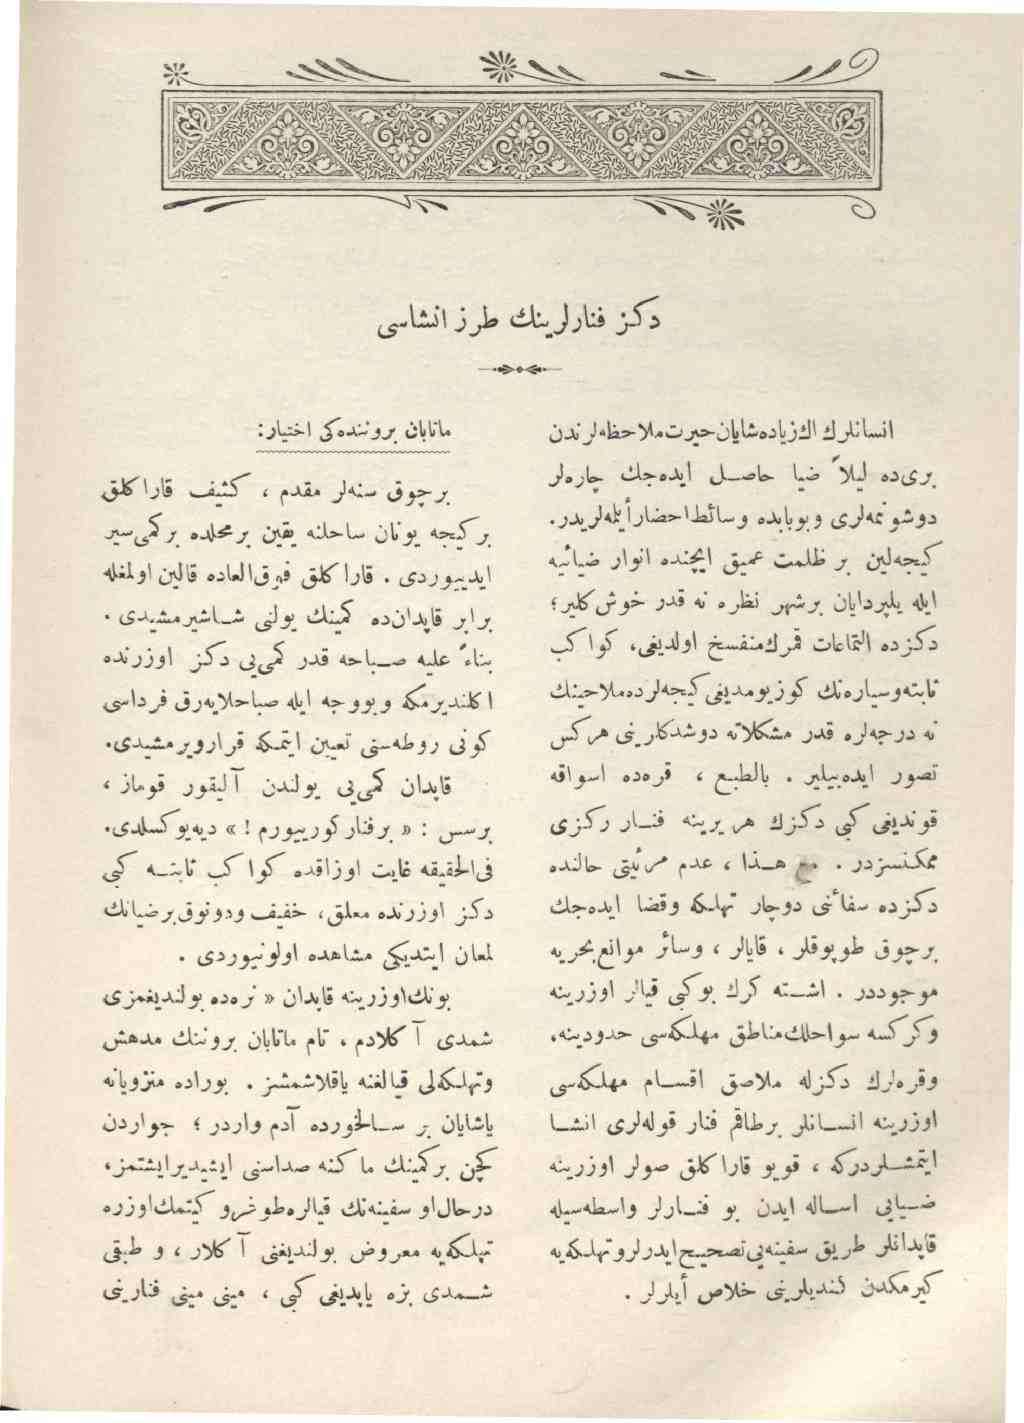 دكز فنارلرينك طرز انشاسی
انسانلرك اك زياده شايان حيرت ملاحظه لرندن
بری ده ليلاً ضيا حاصل ايده جك چاره لر
دوشونمه لری و بو بابده وسائط احضار أيلمه لريدر.
كيجه لين بر ظلمت عميق ايچنده انوار ضيائيه
ايله پلپردايان بر شهر نظره نه قدر خوش كلير ؛
دكزده التماعات قمرك منفسخ اولديغی، كواكب
ثابته وسياره نك كوزيومديغی كيجه لرده ملاحينك
نه درجه لره قدر مشكلاته دوشدكارينی هركس
تصور ايده بيلير . بالطبع ، قره ده اسواقه
قونديغی كبی دكزك هر يرينه فنار ركزی
ممكنسزدر . مع هذا ، عدم مرئيتی حالنده
دكزده سفائنی دوچار تهلكه وقضا ايده جك
برچوق طوپوقلر ، قايالر ، وسائر موانع بحريه
موجوددر . اشته كرك بوكبی قيالر اوزرينه
وكركسه سواحلك مناطق مهلكه سی حدودينه،
وقره لرك دكزله ملاصق اقسام مهلكه سی
اوزرينه انسانلر برطاقم فنار قوله لری انشا
ايتمشلردركه ، قويو قاراكلق صولر اوزرينه
ضيايی اساله ايدن بو فنارلر واسطه سيله
قاپدانلر طريق سفينه يی تصحيح ايدرلر و تهلكه يه
كيرمكدن كنديلرينی خلاص أيلرلر .
ماتاپان بروننده كی اختيار:
برچوق سنه لر مقدم ، كثيف قاراكلق
بر كيجه يونان ساحلنه يقين بر محلده بر كمی سير
ايدييوردی . قاراكلق فوق العاده قالين اولمغله
برابر قاپدان ده كمينك يولنی شاشيرمشيدی .
بناءً عليه صباحه قدر كمی يی دكز اوزرنده
اكلنديرمكه و بووجه ايله صباحلايه رق فرداسی
كونی روطه سنی تعيين ايتمكه قرارويرمشيدی.
قاپدان كمی يی يولندن آليقور قوماز ،
برسس : « بر فنار كورييورم ! » ديه يوكسلدی.
فی الحقيقه غايت اوزاقده كواكب ثابته كبی
دكز اوزرنده معلق، خفيف ودونوق برضيانك
لمعان ايتديكی مشاهده اولونيوردی .
بونك اوزرينه قاپدان « نره ده بولنديغمزی
شمدی آكلادم ، تام ماتاپان بروننك مدهش
وتهلكه لی قيالغنه ياقلاشمشز . بوراده منزويانه
ياشايان بر سالخورده آدم واردر ؛ جواردن
كچن بركمينك ماكنه صداسنی ايشيديرايشتمز،
درحال او سفينه نك قيالره طوغرو كيتمك اوزره
تهلكه يه معروض بولنديغنی آكلار ، و طبقی
شمدی بزه ياپديغی كبی ، مينی مينی فنارينی